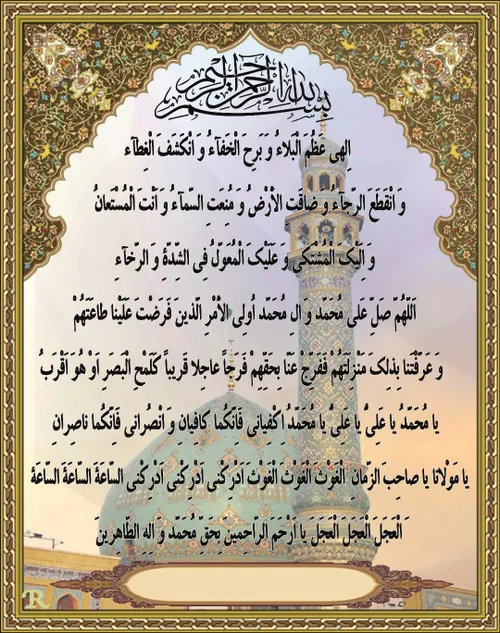 بسم الله الرحمن الرحیم
اِلٰهی عَظُمَ الْبَلاءُ وَ بَرِحَ الْخَفآءُ وَ انْکَشَفَ الْغِطآء
وَ انْقَطَعَ الرَّجآءُ وَ ضاقَتِ الاَرْضُ وَ مُنِعَتِ السَّمآءُ وَ اَنْتَ الْمُسْتَعانُ
وَ اِلَیْکَ الْمُشْتَکی وَ عَلَیْکَ الْمُعَوَّلُ فِی الشِّدَّةِ وَ الرَّخآءِ
اَللّهُمَّ صَلِّ عَلی مُحَمَّد وَ الِ مُحَمَّد اُولِی الاَمْرِ الَّذینَ فَرَضْتَ عَلَیْنا طاعَتَهُمْ
وَ عَرَّفْتَنا بِذلِکَ مَنْزِلَتَهُمْ فَفَرِّجْ عَنّا بِحَقِّهِمْ فَرَجاً عاجِلا قَریباً کَلَمْحِ الْبَصَرِ اَوْ هُوَ اَقْرَبُ
یا مُحَمَّدُ یا عَلِیُّ یا عَلِیُّ یا مُحَمَّدُ اِکْفِیانی فَاِنَّکُما کافِیانِ وَ انْصُرانی فَاِنَّکُما ناصِرانِ
یا مَوْلانا یا صاحِبَ الزَّمانِ الْغَوْثَ الْغَوْثَ الْغَوْثَ اَدْرِکْنی اَدْرِکْنی اَدْرِکْنی السّاعَةَ السّاعَةَ السّاعَةَ
الْعَجَلَ الْعَجَلَ الْعَجَلَ یا اَرْحَمَ الرّاحِمینَ بِحَقِّ مُحَمَّد وَ الِهِ الطّاهِرینَ
R